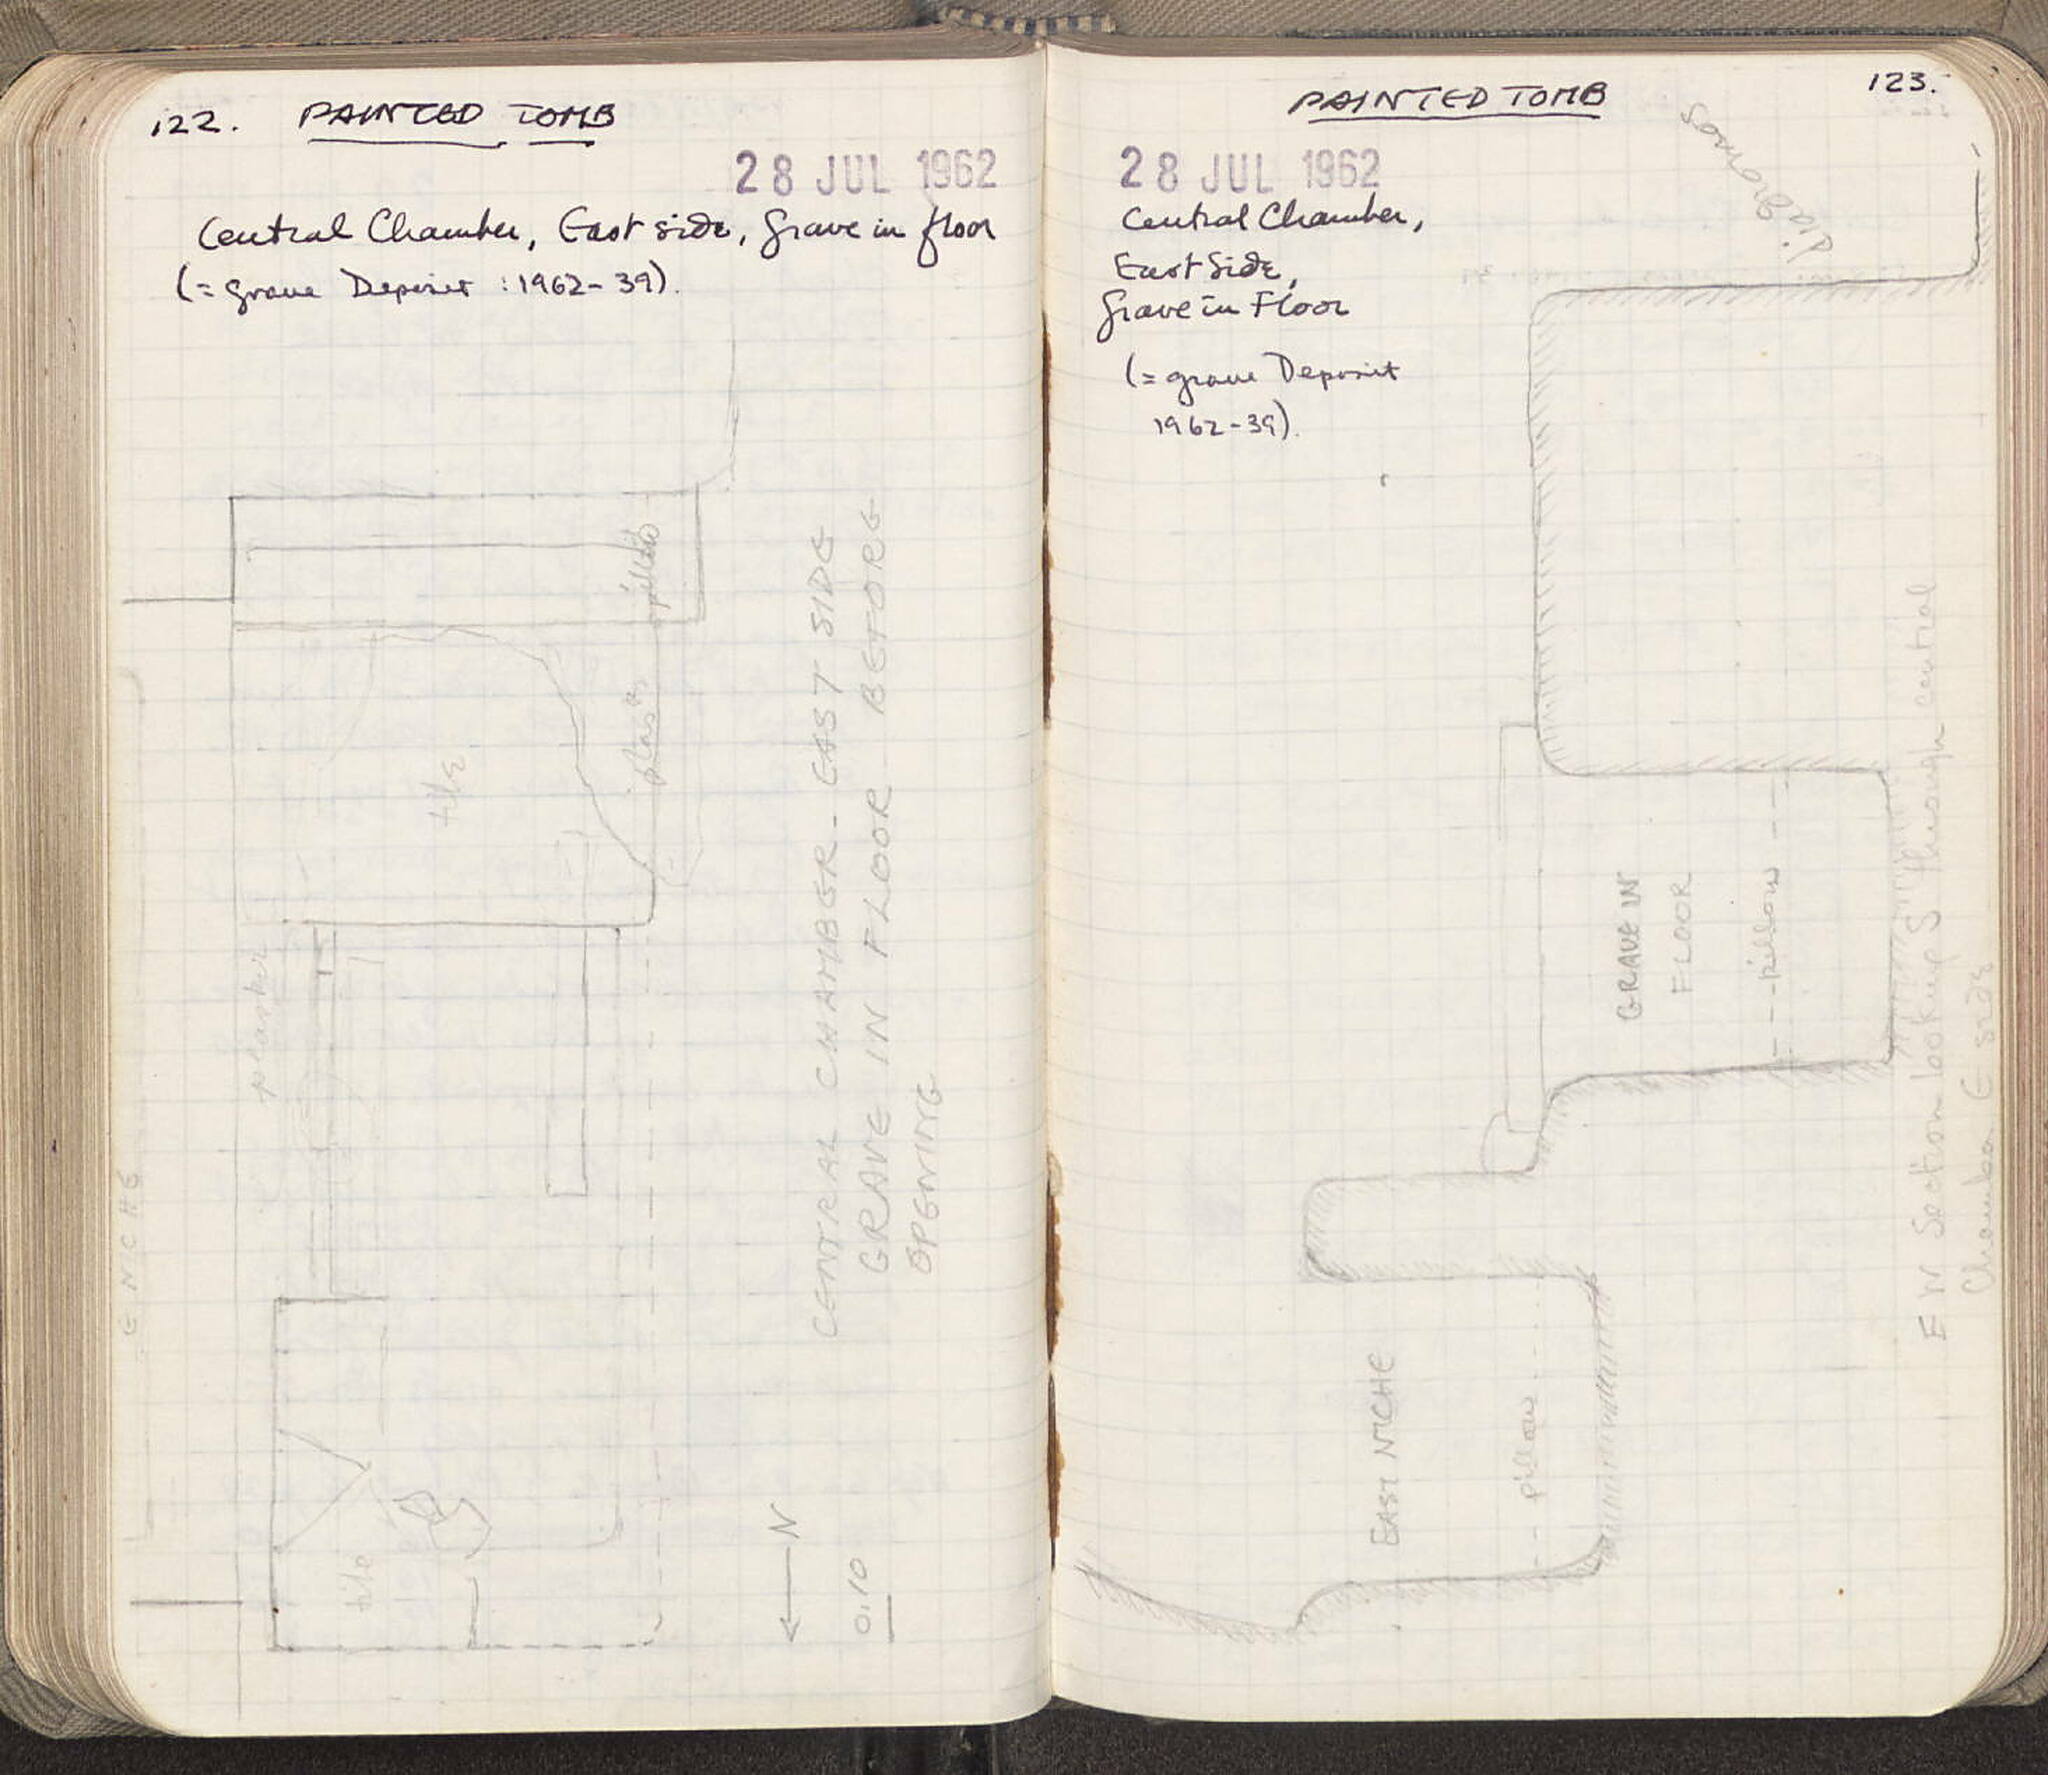 122. PAINTED TOMB
28 JUL 1962
Central Chamber, East side, Grave in floor
(= grave Deposit : 1962-39).
pillow
plas
tile
plaster
E NICHE
tile
CENTRAL CHAMBER - EAST SIDE
GRAVE IN FLOOR BEFORE
OPENING
N
0.10
PAINTED TOMB
123.
28 JUL 1962
Central Chamber,
East Side,
Grave in Floor
(= grave Deposit
1962-39).
diadromos
GRAVE IN
FLOOR
pillow
EAST NICHE
pillow
E W Section looking S through central
Chamber E side